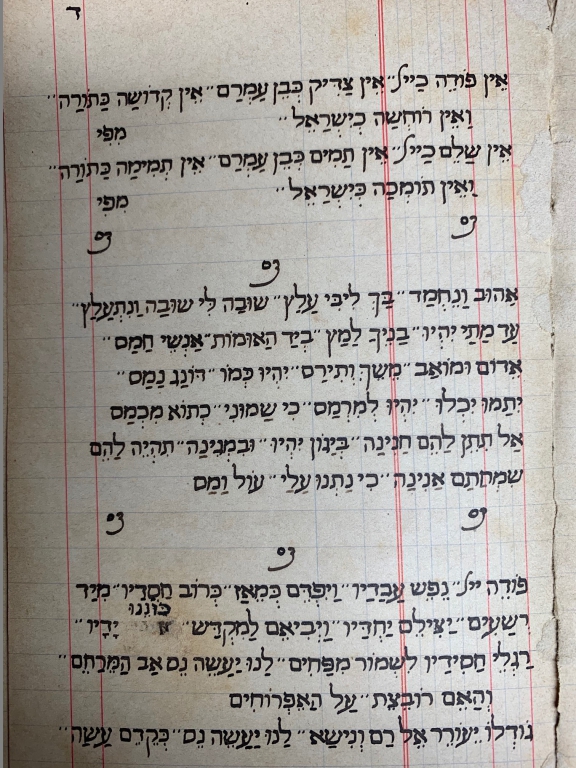 ד
אֵין פּוֹדֶה כַּייל״ אֵין צַדִּיק כְּבֶן עַמְרָם״ אֵין קְדוֹשָׁה כַּתּוֹרָה״
וְאֵין רוֹחֲשָׁה כְּיִשְׂרָאֵל״ מִפִּי
אֵין שָׁלֵם כַּייל״ אֵין תָּמִים כְּבֶן עַמְרָם״ אֵין תְּמִימָה כַּתּוֹרָה״
וְאֵין תּוֹמְכָהּ כְּיִשְׂרָאֵל״ מִפִּי
אָהוּב וְנֶחְמָד״ בָּךְ לִיבִּי עָלַץ״ שׁוּבָה לִּי שׁוּבָה וְנִתְעַלַּץ״
עַד מָתַי יִהְיוּ״ בָּנֶיךָ לַמַּץ״ בְּיַד הָאוּמוֹת״ אַנְשֵׁי חָמָס״
אֱדוֹם וּמוֹאָב״ מֶשֶׁךְ וְתִירַס״ יִהְיוּ כְּמוֹ״ דּוֹנַג נָמַס״
יִתַּמּוּ יִכְלוּ״ יִהְיוּ לְמִרְמָס״ כִּי שַׁמּוּנִי״ כְּתוֹא מִכְמָס
אַל תִּתֵּן לָהֶם חֲנִינָה״ בְּיָגוֹן יִהְיוּ״ וּבִמְגִינָה״ תִּהְיֶה לָהֶם
שִׂמְחָתָם אֲנִינָה״ כִּי נָתְנוּ עָלַי״ עוֹל וָמַס
פּוֹדֶה ייל״ נֶפֶשׁ עֲבָדָיו״ וְיִפְדֵּם כְּמֵאָז״ כְּרוֹב חֲסָדָיו״ מִיַּד
רְשָׁעִים״ יַצִּילֵם יַחְדָּיו״ וִיבִיאֵם לַמִּקְדָּשׁ״ כּוֹנְנוּ יָדָיו״
רַגְלֵי חֲסִידָיו לִשְׁמוֹר מִפַּחִים״ לָנוּ יַעֲשֶׂה נֵס אַב הָרַחֵם״
וְהָאֵם רוֹבֶצֶת״ עַל הָאֶפְרוֹחִים
גּוֹדְלוֹ יְעוֹרֵר אֵל רַם וְנִישָּׂא״ לָנוּ יַעֲשֶׂה נֵס״ כְּקֶדֶם עָשָׂה״